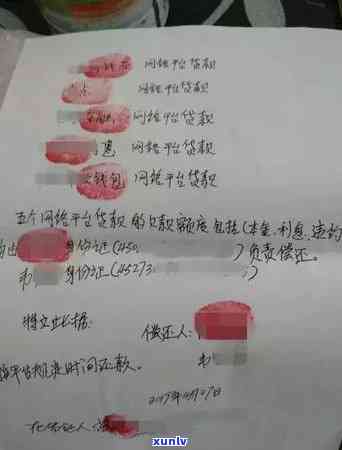 网络平台贷款
网络平台贷款
网络平台贷款
网络平台贷款
钱包 网络平台贷款
五个网络平台贷款的欠款额度包括(本金、利息、违约
身份证(450. ) 负责偿还。
韦 身份证(45273 )
特立此据: 偿还人:
韦
按平台规定时间还款。
2017年 月27日
xunlv